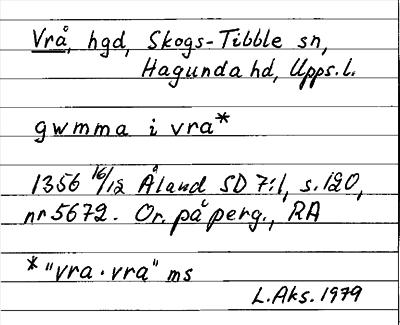 Vrå, hgd, Skogs-Tibble sn,
Hagunda hd, Upps.l.
gwmma i vra*
1356 16/12 Åland SD 7:1, s.120,
nr 5672. Or. på perg., RA
* "vra.vra" ms
L.Aks. 1979